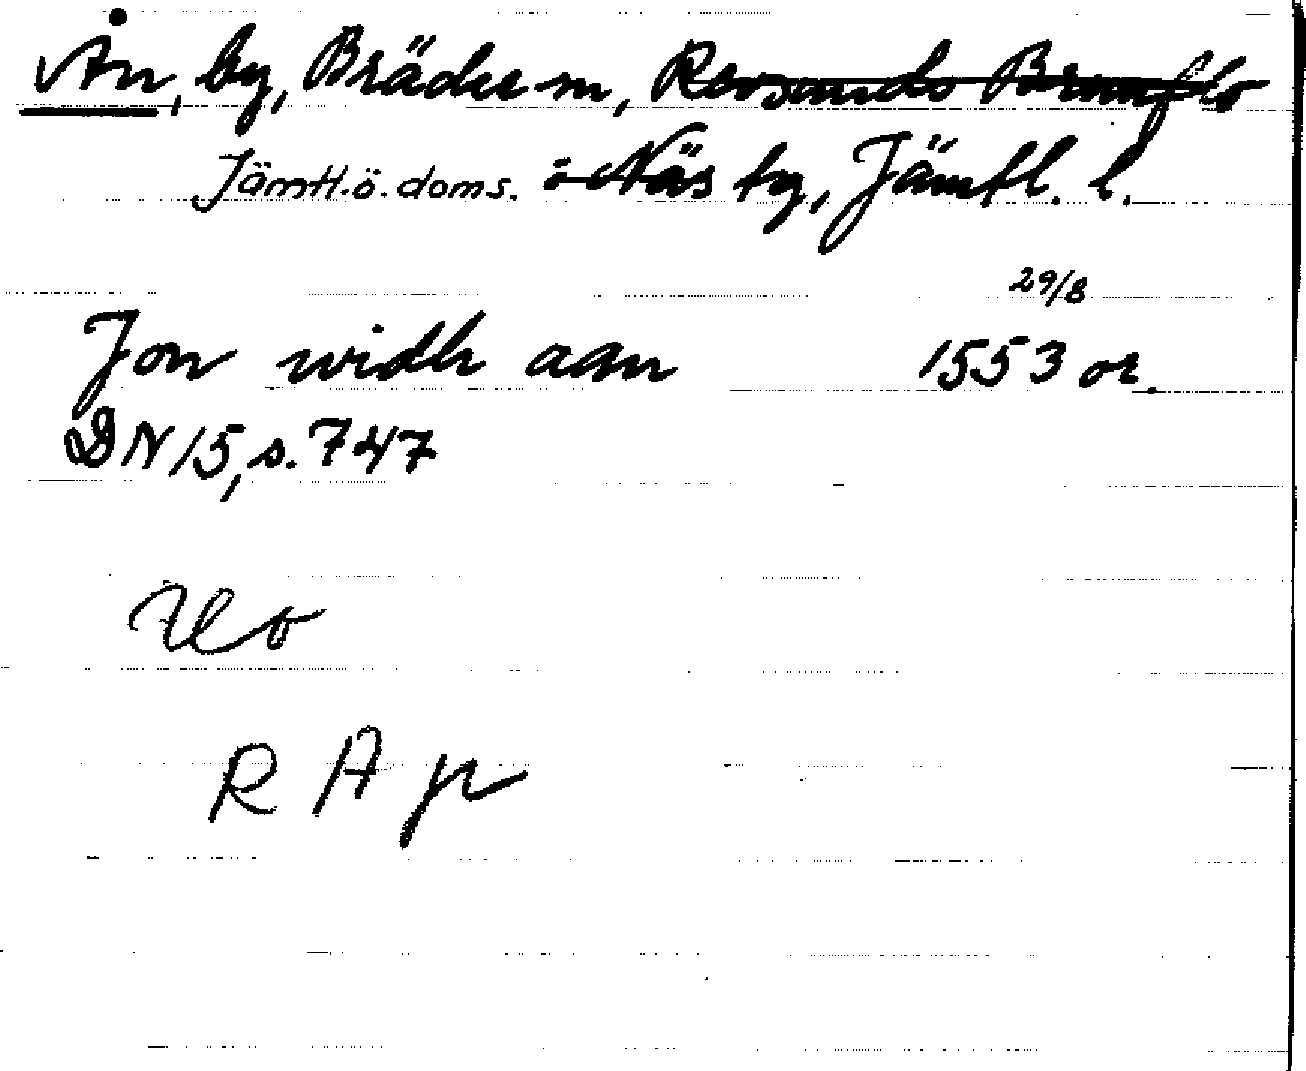 Ån, by, Bräcke sn, Revsunds Brunflo
Jämtl. ö. doms. o Näs tg, Jämtl. l.
29/8
Jon widh aan 1553 or.
DN 15, s. 747
RAp